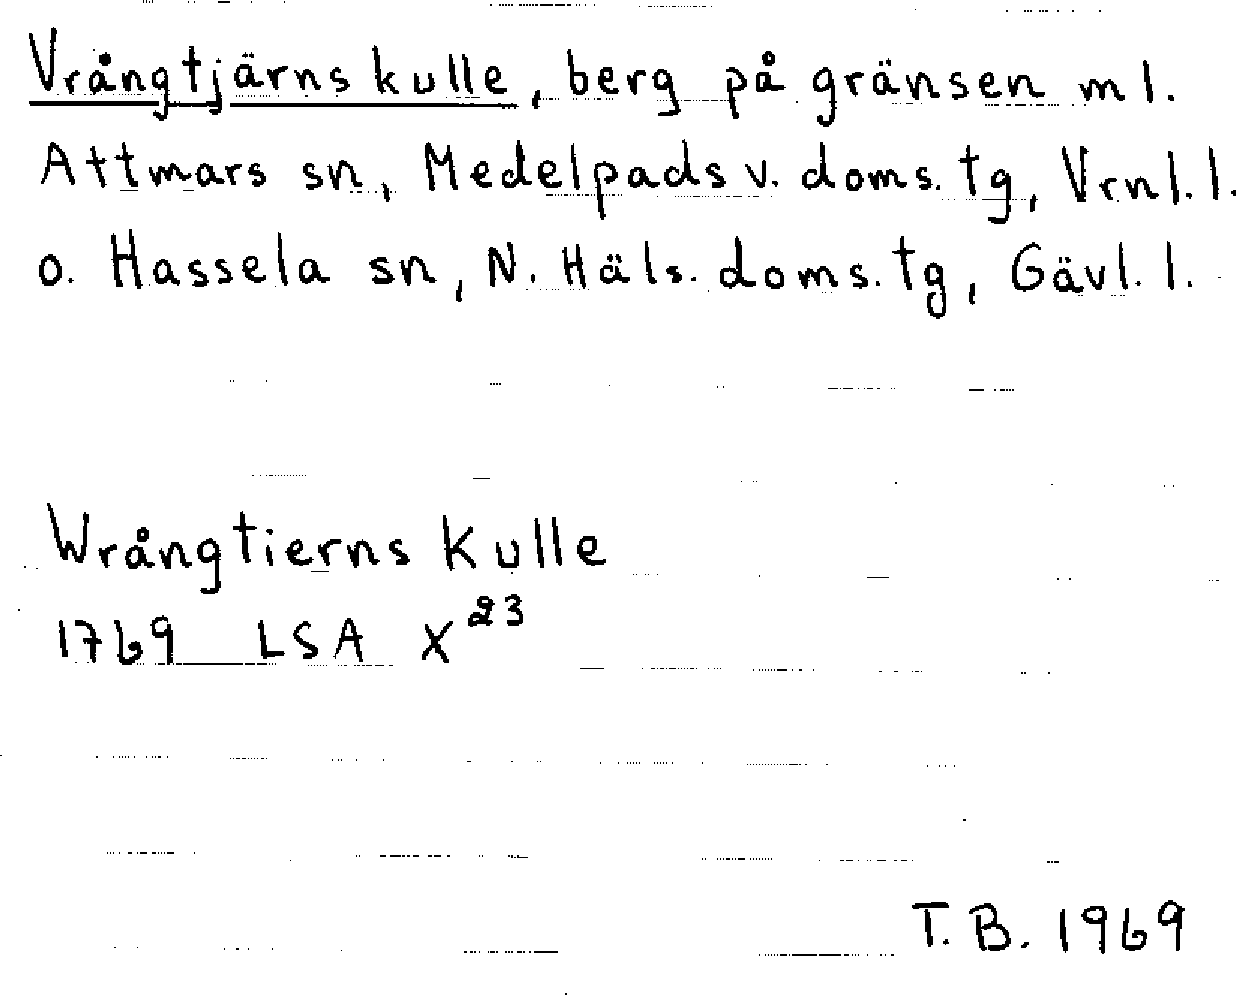 Vrångtjärnskulle, berg på gränsen ml.
Attmars sn, Medelpads v. doms.tg, Vrnl.l.
o. Hassela sn, N. Häls. doms.tg, Gävl.l.
Wrångtierns Kulle
1769 LSA X²³
T.B. 1969